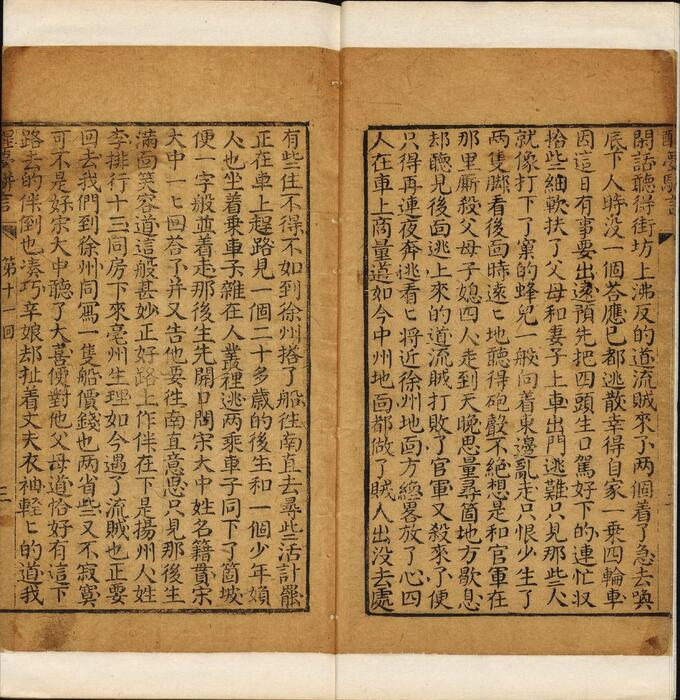 醒夢駢言
鬧語聽得街坊上沸反的道流賊來了两個着了急去喚
底下人時没一個答應已都逃散幸得自家一乗四輪車
因這日有事要出遠預先把四頭生口駕好下的連忙収
拾些細軟扶了父母和妻子上車出門逃難只見那些人
就像打下了窠的蜂兒一般向着東邊亂走只恨少生了
两隻脚看後面時遠ヒ地聽得砲聲不絶想是和官軍在
那里厮殺父母子媳四人走到天晚思量尋箇地方歇息
却聽見後面逃上來的道流賊打敗了官軍又殺來了便
只得再連夜奔逃看ヒ將近徐州地面方纔畧放了心四
人在車上商量道如今中州地面都做了賊人出没去處
有些住不得不如到徐州搭了船徃南直去尋些活計罷
正在車上趕路見一個二十多歲的後生和一個少年婦
人也坐着乗車子雜在人叢裡逃两乗車子同下了箇坡
便一字般並着走那後生先開口問宋大中姓名籍貫宋
大中一ヒ回答了并又告他要徃南直意思只見那後生
滿面笑容道這般甚妙正好路上作伴在下是揚州人姓
李排行十三同房下來亳州生理如今遇了流賊也正要
回去我們到徐州同寫一隻船價錢也两省些又不寂寞
可不是好宋大中聽了大喜便對他父母道恰好有這下
路去的伴倒也凑巧辛娘却扯着丈夫衣袖輕ヒ的道我
醒夢駢言 第十一回 三